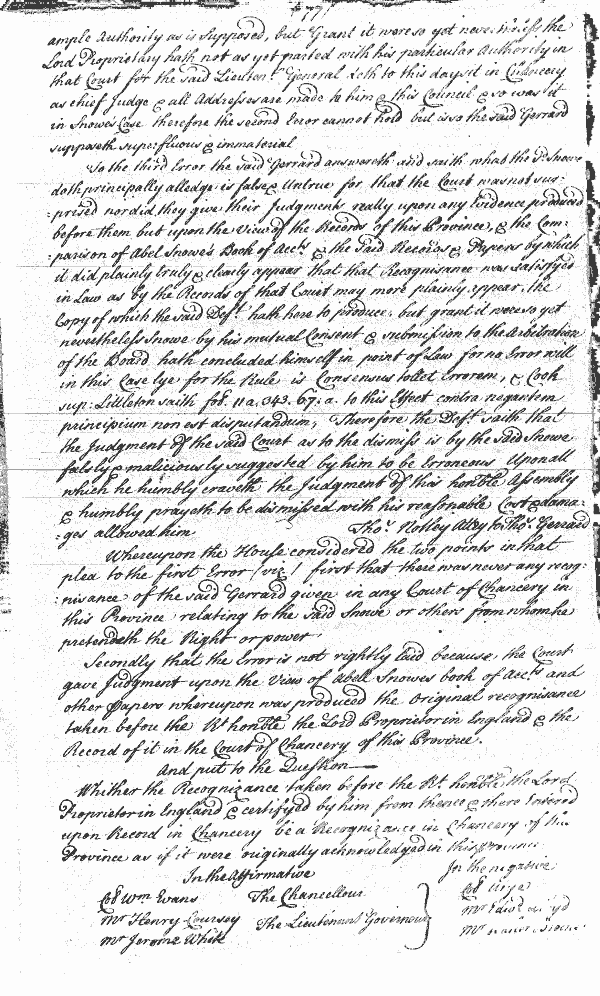 77
ample Authority as is supposed, but Grant it were so yet nevertheless the
Lord Proprietary hath not as yet parted with his particular Authority in
that Court for the said Lieutent General doth to this day sit in Chancery
as chief Judge & all Addresses are made to him & this Council & so was it
in Snowes Case therefore the second Error cannot hold but is so the said Gerrard
supposeth superfluous & immaterial
To the third Error the said Gerrard answereth and saith what the sd Snowe
doth principally alledge is false & Untrue for that the Court was not sur=
:prised nor did they give their Judgments really upon any Evidence produced
before them but upon the View of the Records of this Province, & the Com=
:parison of Abel Snowe's Book of Accts & the said Records & Papers by which
it did plainly truly & clearly appear that that Recognisance was satisfyed
in Law as by the Records of that Court may more plainly appear, the
Copy of which the said Deft hath here to produce, but grant it were so yet
nevertheless Snowe by his mutual Consent & submission to the Arbitration
of the Board hath concluded himself in point of Law for no Error will
in this Case lye for the Rule is Consensus tollet Errorem, & Cook
sup: Littleton saith fol. 11 a. 343. 67: a. to this Effect contra negantem
principium non est disputandum, Therefore the Deft saith that
the Judgment of the said Court as to the dismiss is by the said Snowe
falsly & maliciously suggested by him to be Erroneous Upon all
which he humbly craveth the Judgment of this honble Assembly
& humbly prayeth to be dismissed with his reasonable Cost & dama=
=ges allowed him Thos Notley Atty to Tho. Gerrard
Whereupon the House considered the two points in that
plea to the first Error (viz) first that there was never any recog=
:nisance of the said Gerrard given in any Court of Chancery in
this Province relating to the said Snowe or others from whom he
pretendeth the Right or power
Secondly that the Error is not rightly laid because, the Court
gave Judgment upon the View of Abell Snowes book of Accts and
other papers whereupon was produced the Original recognisance
taken before the Rt honble the Lord Proprietor in England & the
Record of it in the Court of Chancery of this Province.
And put to the Question
Whether the Recognizance taken before the Rt honble the Lord
Proprietor in England & certifyd by him from thence & there Entered
upon Record in Chancery be a Recognizance in Chancery of this
Province as if it were originally acknowledged in this province
In the Affirmative In the negative
Coll Wm Evans The Chancellour Coll
Mr Henry Coursey The Lieutenant Governour Mr
Mr Jerome White Mr